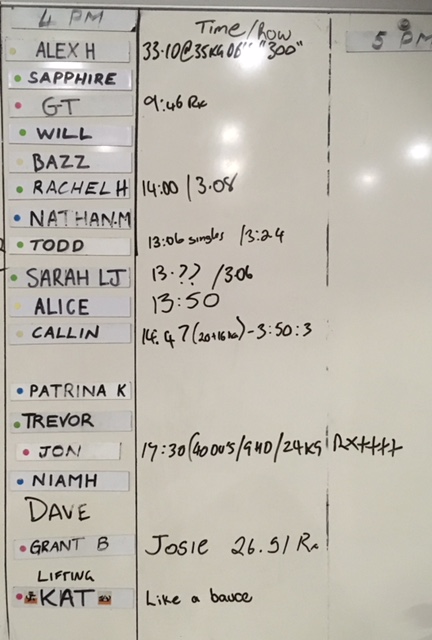 4 PM Time/Row 5 PM
ALEX H 33.10@35KG DB'S "300"
SAPPHIRE
GT 9:46 Rx
WILL
BAZZ
RACHEL H 14:00 / 3.08
NATHAN.M
TODD 13:06 singles / 3:24
SARAH LJ 13.?? / 3:06
ALICE 13:50
CALLIN 14.47 (20+16kg) - 3:50:3
PATRINA K
TREVOR
JON 17:30 (400US/GHD/24KG RX++++
NIAMH
DAVE
GRANT B Josie 26.51 Rx
LIFTING
KAT Like a bauce